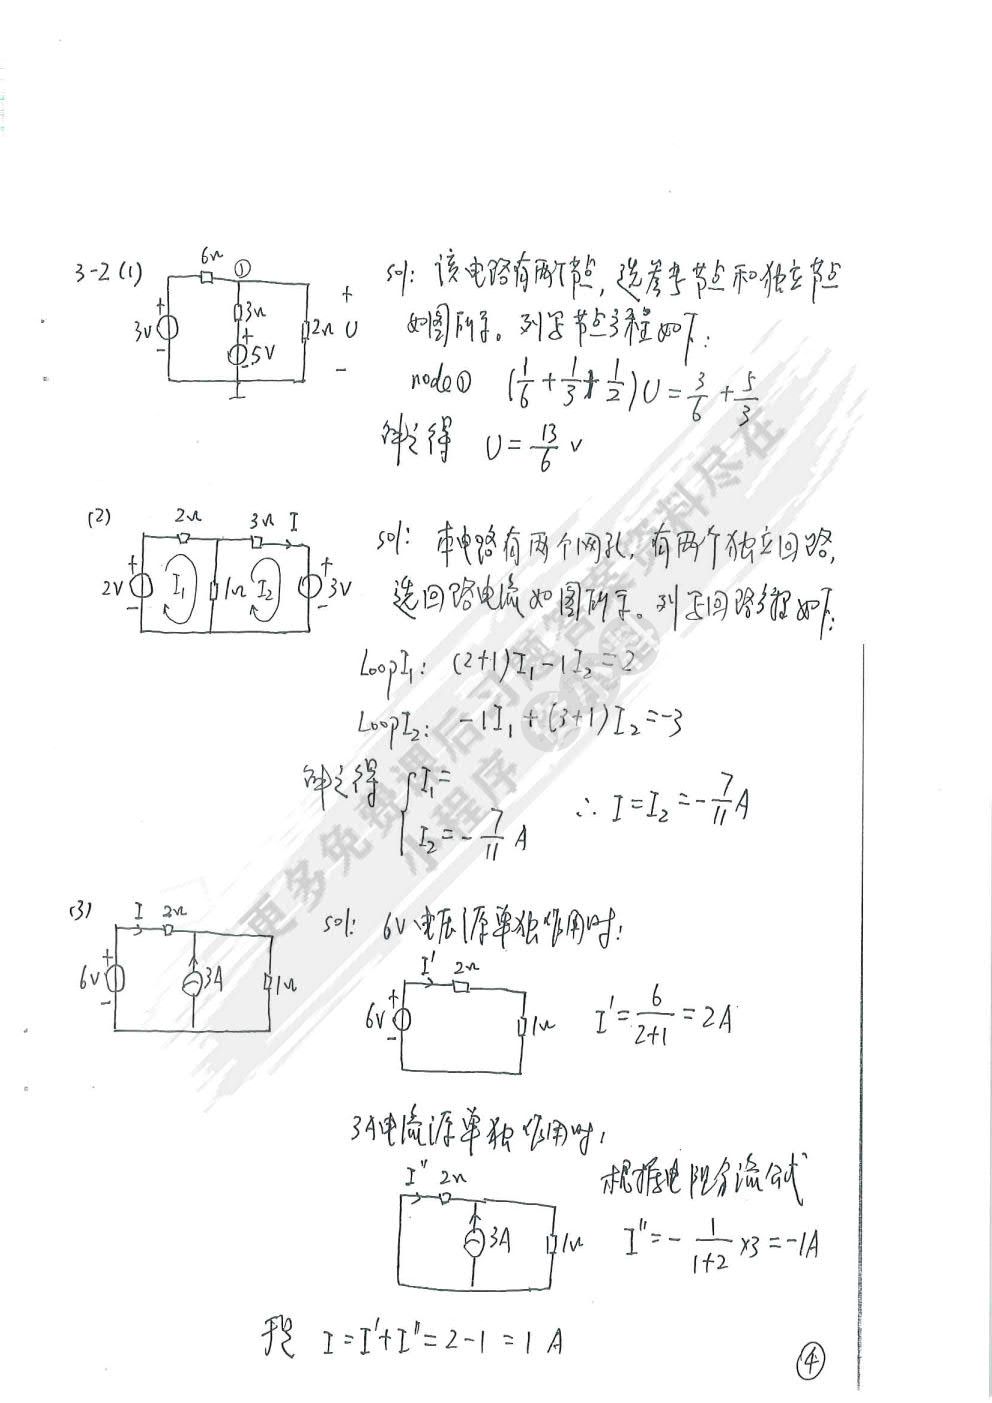 3-2 (1)
6Ω
①
3V
3Ω
5V
2Ω U
sol: 该电路有两个节点, 选参考节点和独立节点
如图所示。列写节点方程如下:
node① (1/6 + 1/3 + 1/2) U = 3/6 + 5/3
解之得 U = 13/6 V
(2)
2Ω 3Ω I
2V I₁ 1Ω I₂ 3V
sol: 本电路有两个网孔, 有两个独立回路,
选回路电流如图所示。列写回路方程如下:
LoopI₁: (2+1)I₁ - 1I₂ = 2
LoopI₂: -1I₁ + (3+1)I₂ = -3
解之得 { I₁ =
I₂ = -7/11 A
∴ I = I₂ = -7/11 A
(3)
I 2Ω
6V 3A 1Ω
sol: 6V电压源单独作用时:
I' 2Ω
6V 1Ω
I' = 6/(2+1) = 2A
3A电流源单独作用时:
I'' 2Ω
3A 1Ω
根据电阻分流公式
I'' = - 1/(1+2) ×3 = -1A
于是 I = I' + I'' = 2 - 1 = 1 A
④
更多免费课后习题答案资料尽在
小程序